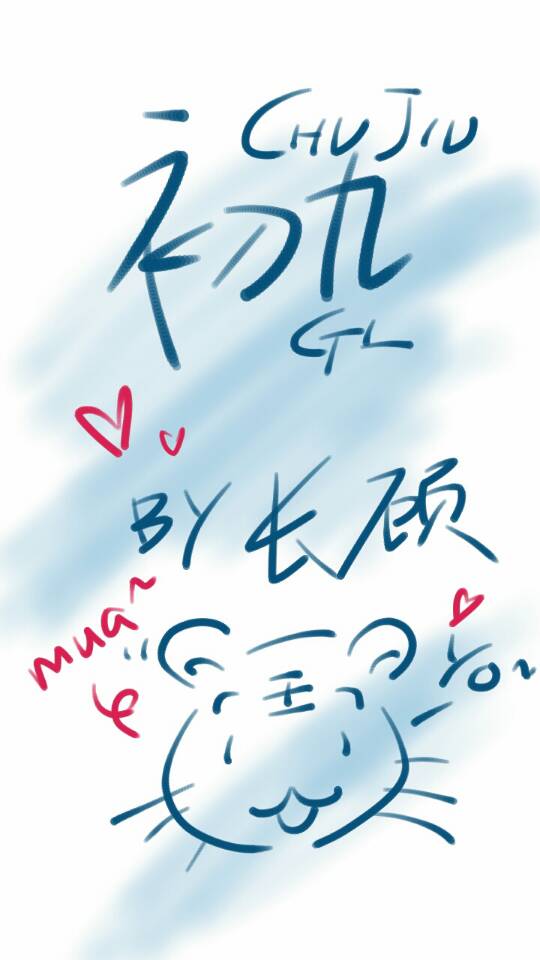 CHUJIU
初九
GL
BY 长顾
mua~
Yo~
王